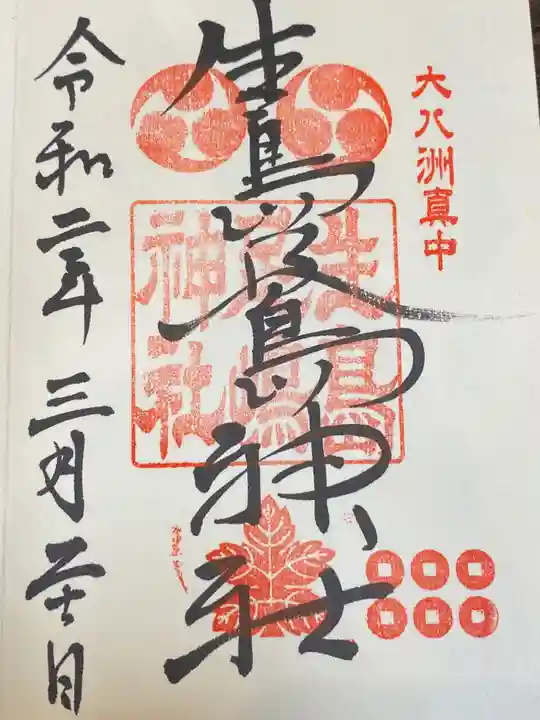 大八洲真中
生島足島神社
生島足嶋神社
令和二年三月二十日